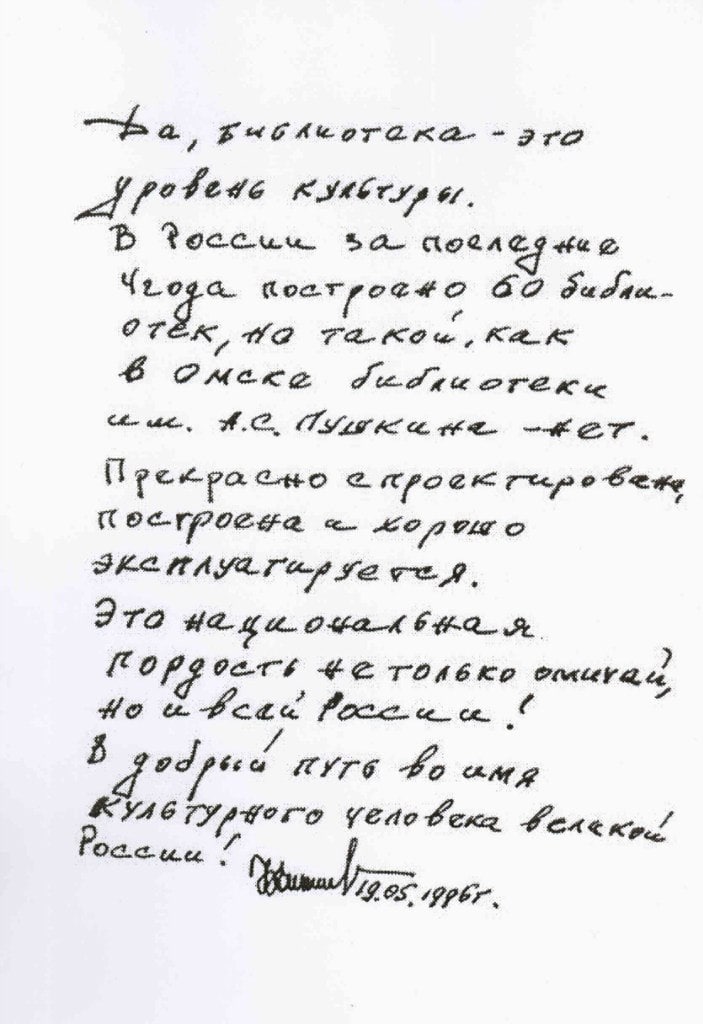 Да, библиотека - это
уровень культуры.
В России за последние
4 года построено 60 библи-
отек, но такой, как
в Омске библиотеки
им. А.С. Пушкина - нет.
Прекрасно спроектирована,
построена и хорошо
эксплуатируется.
Это национальная
гордость не только омичей,
но и всей России!
В добрый путь во имя
культурного человека великой
России!
19.05.1996г.